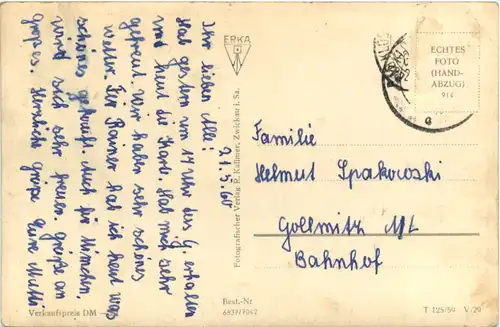 21.5.60
Ihr lieben Alle!
Hab gestern um 17 Uhr das G. erhalten
und heut die Karte. Hab mich sehr
gefreut. Wir haben sehr schönes
Wetter. Für Rainer hab ich heut was
schönes gekauft. Auch für München.
wird sich sehr freuen. Grüße an
großes. Herzliche Grüße Eure Mutti
Verkaufspreis DM
ERKA
Fotografischer Verlag R. Kallmer, Zwickau i. Sa.
Best.-Nr
6837/7042
ECHTES
FOTO
(HAND-
ABZUG)
914
Familie
Helmut Spakowski
Gollmitz N/L
Bahnhof
T 125/59 V/29